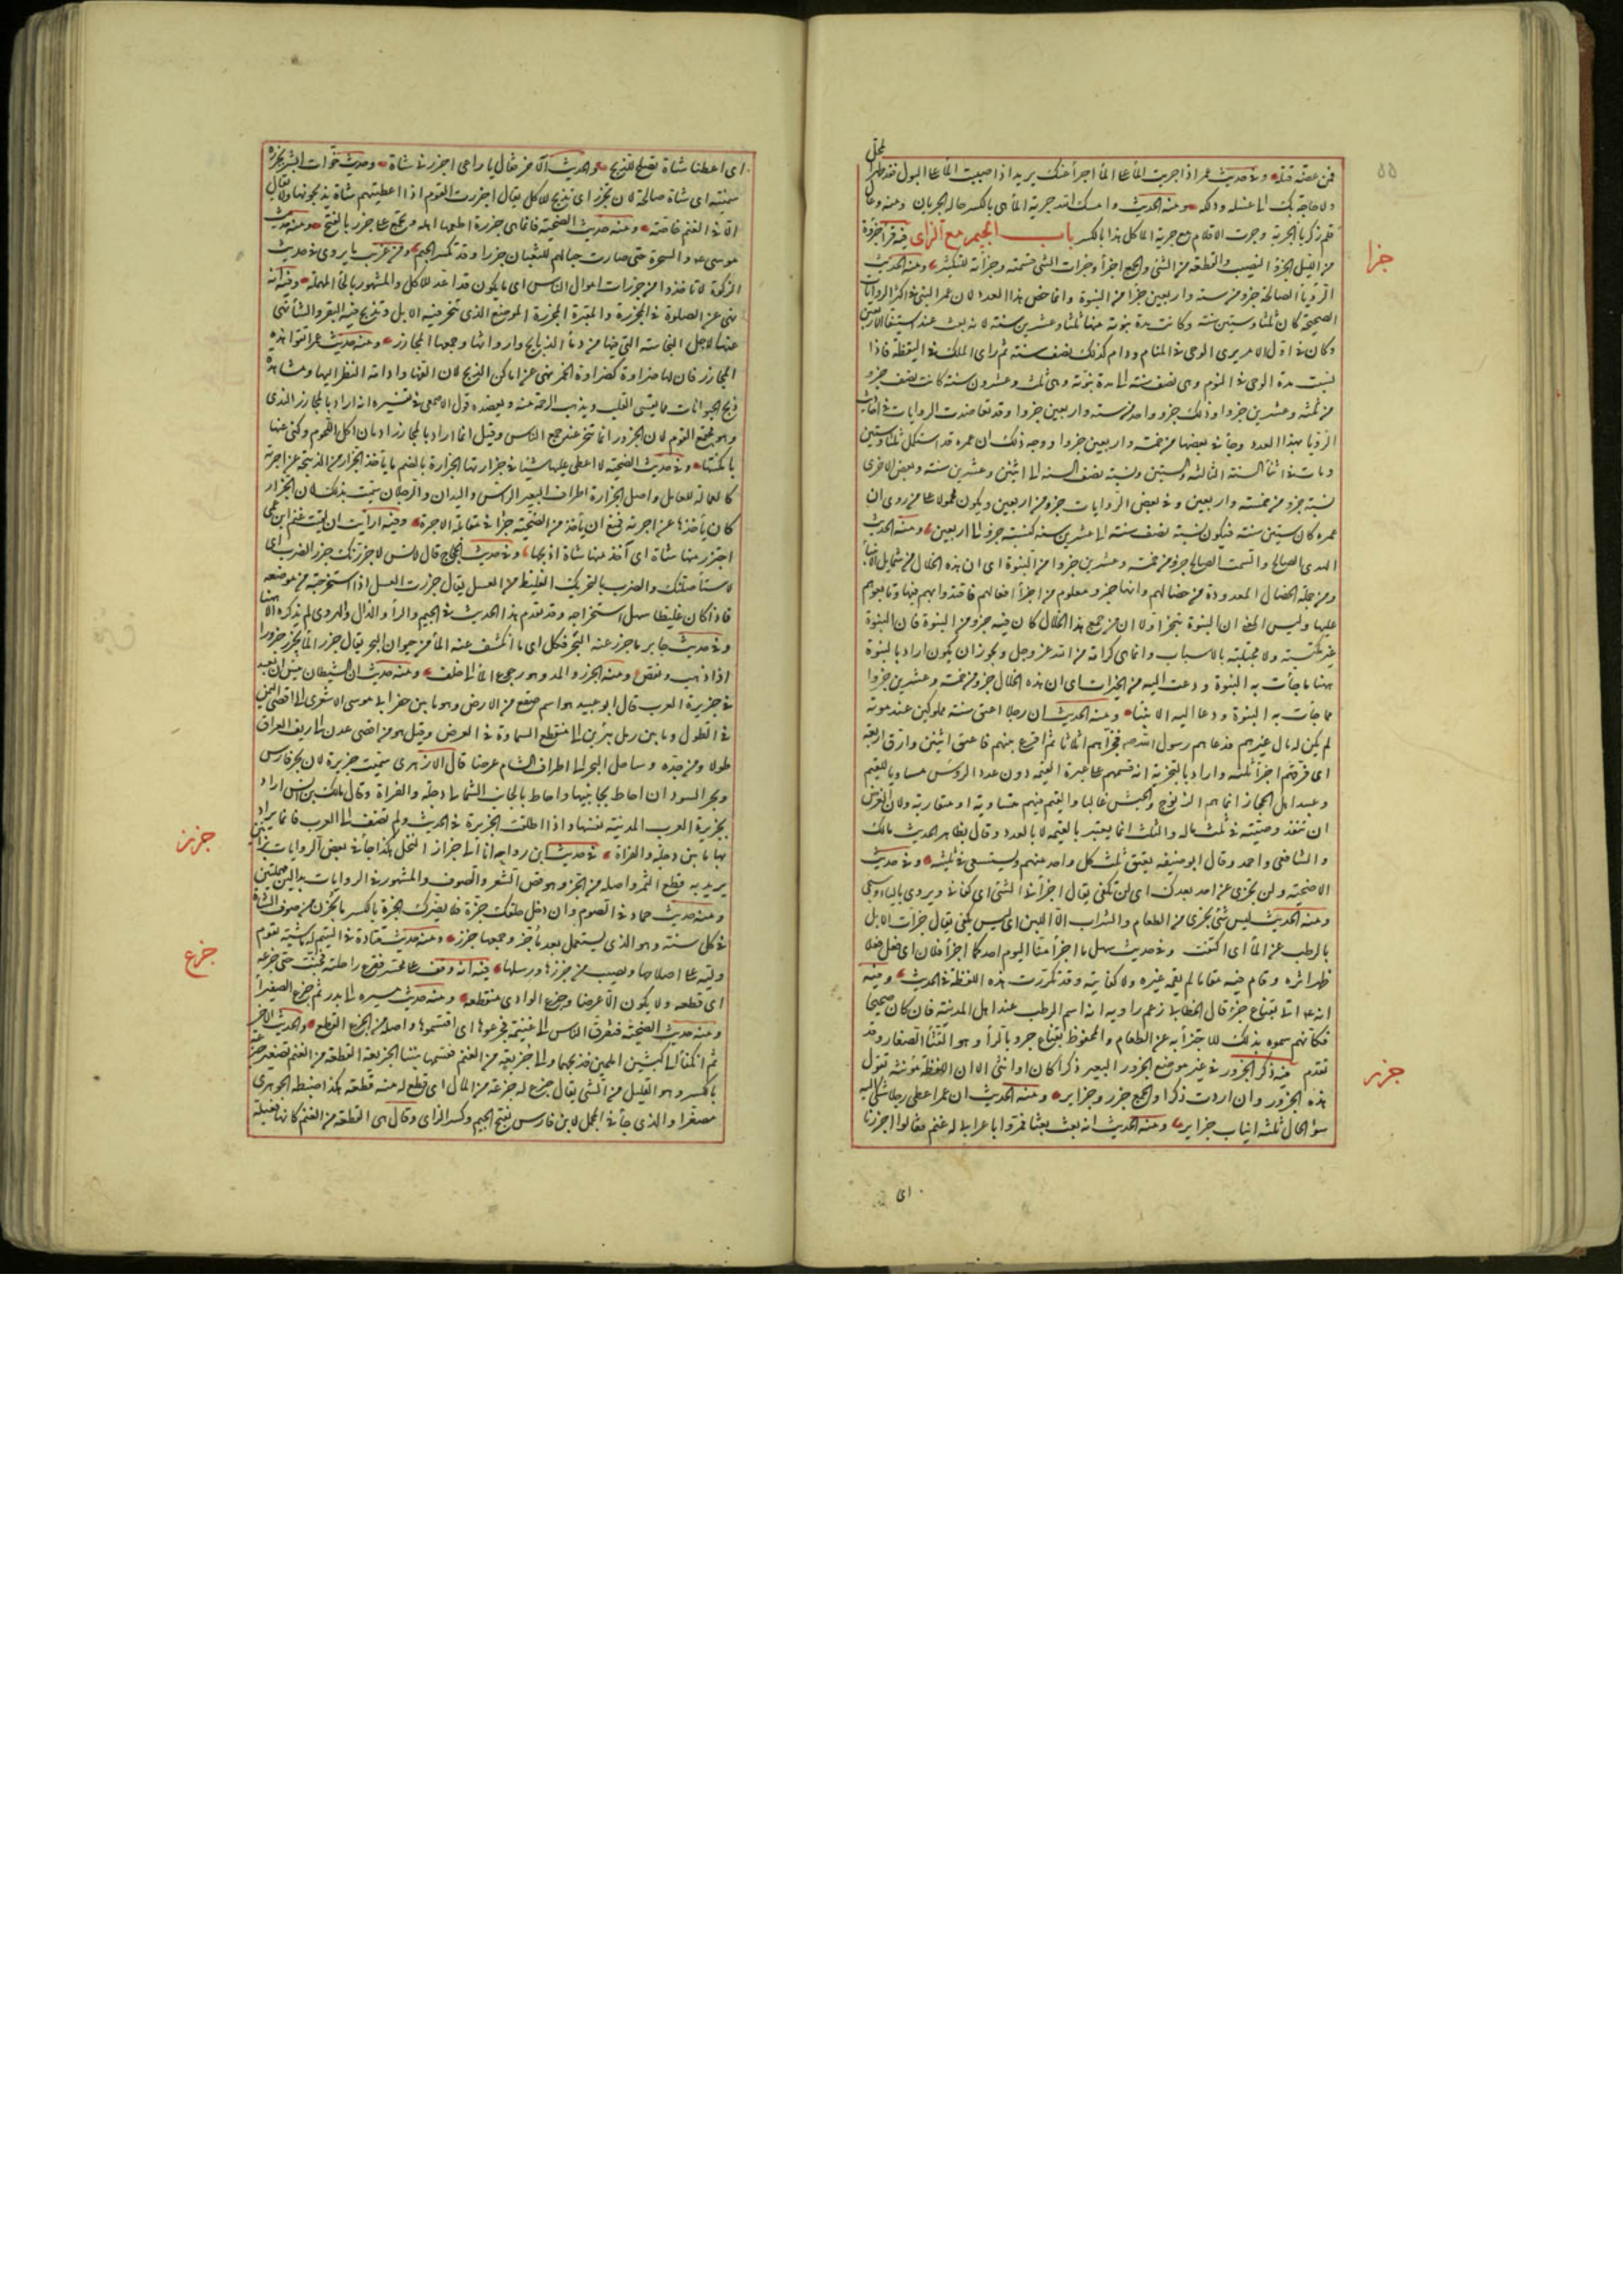 ٥٥
فمن عصته قتله وفى حديث عمر اذا اجريت الماء على الماء اجزأ عنك يريد اذا صببت الماء على البول فقد طهر المحل
ولا حاجة بك الى غسله ودلكه ومنه الحديث وامسك الله جرية الماء هى بالكسر حالة الجريان ومنه وعال
قلم زكريا الجرية وجرت الاقلام مع جرية الماء كل هذا بالكسر باب الجيم مع الزاى فيه قرأ جزؤه
جزا
من الليل الجزء النصيب والقطعة من الشئ والجمع اجزاء وجزأت الشئ قسمته وجزأته للتكثير ومنه الحديث
الرؤيا الصالحة جزو من ستة واربعين جزأ من النبوة وانما خص هذا العدد لان عمر النبى فى اكثر الروايات
الصحيحة كان ثلثا وستين سنة وكانت مدة نبوته منها ثلثا وعشرين سنة لانه بعث عند استيفاء الاربعين
وكان فى اول الامر يرى الوحى فى المنام ودام كذلك نصف سنة ثم راى الملك فى اليقظة فاذا
نسبت مدة الوحى فى النوم وهى نصف سنة الى مدة نبوته وهى ثلث وعشرون سنة كانت نصف جزو
من ثلثة وعشرين جزوا وذلك جزو واحد من ستة واربعين جزوا وقد تعاضدت الروايات فى احاديث
الرؤيا بهذا العدد وجاء فى بعضها من خمسة واربعين جزوا ووجه ذلك ان عمره قد استكمل ثلثا وستين
ومات فى اثناء السنة الثالثة والستين ونسبة نصف السنة الى اثنتين وعشرين سنة وبعض الاخرى
نسبة جزو من خمسة واربعين وفى بعض الروايات جزو من اربعين ويكون محمولا على من روى ان
عمره كان ستين سنة فيكون نسبة نصف سنة الى عشرين سنة كنسبة جزو الى اربعين ومنه الحديث
الهدى الصالح والسمت الصالح جزو من خمسة وعشرين جزوا من النبوة اى ان هذه الخلال من شمايل الانبياء
ومن جملة الخصال المعدودة من خصالهم وانها جزو معلوم من اجزاء افعالهم فاقتدوا بهم فيها وتابعوهم
عليها وليس المعنى ان النبوة تتجزا ولا ان من جمع هذا الخلال كان فيه جزو من النبوة فان النبوة
غير مكتسبة ولا مجتلبة بالاسباب وانما هى كرامة من الله عز وجل ويجوز ان يكون اراد بالنبوة
ههنا ما جاءت به النبوة ودعت اليه من الخيرات اى ان هذه الخلال جزو من خمسة وعشرين جزوا
مما جاءت به النبوة ودعا اليه الانبياء ومنه الحديث ان رجلا اعتق ستة مملوكين عند موته
لم يكن له مال غيرهم فدعاهم رسول الله صم فجزأهم اثلاثا ثم اقرع بينهم فاعتق اثنين وارق اربعة
اى فرقهم اجزاء ثلثة واراد بالتجزية انه قسمهم على عبرة القيمة دون عدد الرؤس
وعبيد اهل الحجاز انما هم الزنوج والحبش غالبا والقيم فيهم متساوية او متقاربة ولان الغرض
ان تنفذ وصيته فى ثلث ماله والثلث انما يعتبر بالقيمة لا بالعدد وقال بظاهر الحديث مالك
والشافعى واحمد وقال ابو حنيفة يعتق ثلث كل واحد منهم ويستسعى فى ثلثيه وفى حديث
الاضحية ولن تجزى عن احد بعدك اى لن تكفى يقال اجزأنى الشئ اى كفانى ويروى بالياء وسيجئ
ومنه الحديث ليس شئ يجزى من الطعام والشراب الا اللبن اى ليس يكفى يقال جزأت الابل
بالرطب عن الماء اى اكتفت وفى حديث سهل ما اجزأ منا اليوم احد كما اجزأ فلان اى فعل فعلا
ظهر اثره وقام فيه مقاما لم يقمه غيره ولا كفى فيه وقد تكررت هذه اللفظة فى الحديث وفيه
انه عم اتى بقناع جزء قال الخطابى زعم راويه انه اسم الرطب عند اهل المدينة فان كان صحيحا
فكانهم سموه بذلك للاجتزاء به عن الطعام والمحفوظ بقناع جرو بالراء وهو القثاء الصغار وقد
تقدم فيه ذكر الجزور فى غير موضع الجزور البعير ذكرا كان او انثى الا ان اللفظة مونثة تقول
جزر
هذه الجزور وان اردت ذكرا والجمع جزر وجزاير ومنه الحديث ان عمر اعطى رجلا شكى اليه
سوء الحال ثلثة انياب جزاير ومنه الحديث انه بعث بعثا فمروا باعرابى له غنم فقالوا اجزرنا
اى
اى اعطنا شاة تصلح للذبح والحديث الاخر فقال يا راعى اجزرنى شاة وحديث خوات ابشر بجزرة
سمينة اى شاة صالحة لان تجزر اى تذبح للاكل يقال اجزرت القوم اذا اعطيتهم شاة يذبحونها ولا يقال
الا فى الغنم خاصة ومنه حديث الضحية فانما هى جزرة اطعمها اهله وتجمع على جزر بالفتح ومنه حديث
موسى عم والسحرة حتى صارت حبالهم للثعبان جزرا وقد تكسر الجيم ومن غريب ما يروى فى حديث
الزكوة لا تاخذوا من جزرات اموال الناس اى ما يكون قد اعد للاكل والمشهور بالحاء المهملة وفيه انه
نهى عن الصلوة فى المجزرة والمقبرة المجزرة الموضع الذى تنحر فيه الابل وتذبح فيه البقر والشاء نهى
عنها لاجل النجاسة التى فيها من دماء الذبايح وارواثها وجمعها المجازر ومنه حديث عمر اتقوا هذه
المجازر فان لها ضراوة كضراوة الخمر نهى عن اماكن الذبح لان الفها وادامة النظر اليها ومشاهدة
ذبح الحيوانات مما يقسى القلب ويذهب الرحمة منه ويعضده قول الاصمعى فى تفسيره انه اراد بالمجازر الندى
وهو مجتمع القوم لان الجزور انما تنحر عند جمع الناس وقيل انما اراد بالمجازر ادمان اكل اللحوم وكنى عنها
بامكنتها وفى حديث الضحية لا اعطى عليها شيئا فى جزارتها الجزارة بالضم ما ياخذ الجزار من الذبيحة عن اجرته
كالعمالة للعامل واصل الجزارة اطراف البعير الراس واليدان والرجلان سميت بذلك لان الجزار
كان ياخذها عن اجرته فمنع ان ياخذ من الضحية جزأ فى مقابلة الاجرة وفيه ارايت ان لقيت غنم ابن عمى
اجتزر منها شاة اى آخذ منها شاة اذبحها وفى حديث الحجاج قال لانس لاجزرنك جزر الضرب اى
لاستأصلنك والضرب بالتحريك الغليظ من العسل يقال جزرت العسل اذا استخرجته من موضعه
فاذا كان غليظا سهل استخراجه وقد تقدم هذا الحديث فى الجيم والراء والدال والهروى لم يذكره الا هنا
وفى حديث جابر ما جزر عنه البحر فكل اى ما انكشف عنه الماء من حيوان البحر يقال جزر الماء يجزر جزرا
اذا ذهب ونقص ومنه الجزر والمد وهو رجوع الماء الى خلف ومنه حديث ان الشيطان يئس ان يعبد
فى جزيرة العرب قال ابو عبيد هو اسم صقع من الارض وهو ما بين حفر ابى موسى الاشعرى الى اقصى اليمن
فى الطول وما بين رمل يبرين الى منقطع السماوة فى العرض وقيل هو من اقصى عدن الى ريف العراق
طولا ومن جده وساحل البحر الى اطراف الشام عرضا قال الازهرى سميت جزيرة لان بحر فارس
وبحر السودان احاط بجانبيها واحاط بالجانب الشمالى دجلة والفراة وقال مالك بن انس اراد
بجزيرة العرب المدينة نفسها واذا اطلقت الجزيرة فى الحديث ولم تضف الى العرب فانما يراد
جزز
بها ما بين دجلة والفراة فى حديث ابن رواحه انا الى جزاز النخل هكذا جاء فى بعض الروايات بزائين
يريد به قطع الثمر واصله من الجز وهو قص الشعر والصوف والمشهور فى الروايات بدالين مهملتين
ومنه حديث حماد فى الصوم وان دخل حلقك جزة فلا يضرك الجزة بالكسر ما يجز من صوف الشاة
فى كل سنة وهو الذى لم يستعمل بعد ما جز وجمعها جزز ومنه حديث قتادة فى اليتيم له ماشية تقوم
جزع
وليه على اصلاحها ويصيب من جززها ورسلها فيه انه وقف على محسر فقرع راحلته فخبت حتى جزعه
اى قطعه ولا يكون الا عرضا وجزع الوادى منقطعه ومنه حديث مسيره الى بدر ثم جزع الصفيراء
ومنه حديث الضحية فتفرق الناس الى غنيمة فتجزعوها اى اقتسموها واصله من الجزع القطع والحديث الاخر
ثم انكفأ الى كبشين املحين فذبحهما والى جزيعة من الغنم فقسمها بيننا الجزيعة القطعة من الغنم تصغير جزعة
بالكسر وهو القليل من الشئ يقال جزع له جزعة من المال اى قطع له منه قطعة هكذا ضبطه الجوهرى
مصغرا والذى جاء فى المجمل لابن فارس بفتح الجيم وكسر الزاى وقال هى القطعة من الغنم كانها فعيلة